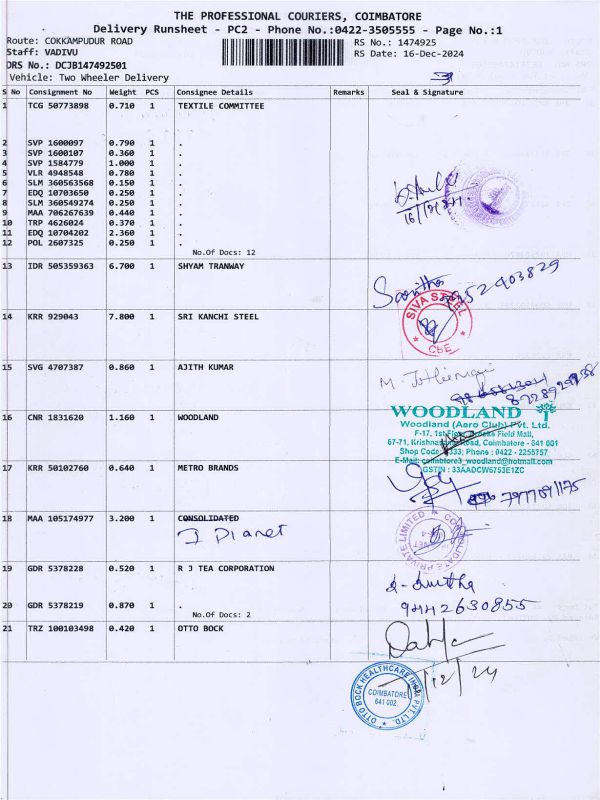 THE PROFESSIONAL COURIERS, COIMBATORE
Delivery Runsheet - PC2 - Phone No.:0422-3505555 - Page No.:1
Route: COKKAMPUDUR ROAD
RS No.: 1474925
Staff: VADIVU
RS Date: 16-Dec-2024
DRS No.: DCJB147492501
Vehicle: Two Wheeler Delivery
S No Consignment No Weight PCS Consignee Details Remarks Seal & Signature
1 TCG 50773898 0.710 1 TEXTILE COMMITTEE
2 SVP 1600097 0.790 1 .
3 SVP 1600107 0.360 1 .
4 SVP 1584779 1.000 1 .
5 VLR 4948548 0.780 1 .
6 SLM 360563568 0.150 1 .
7 EDQ 10703650 0.250 1 .
8 SLM 360549274 0.250 1 .
9 MAA 706267639 0.440 1 .
10 TRP 4626024 0.370 1 .
11 EDQ 10704202 2.360 1 .
12 POL 2607325 0.250 1 .
No.Of Docs: 12
13 IDR 505359363 6.700 1 SHYAM TRANWAY
14 KRR 929043 7.800 1 SRI KANCHI STEEL
SIVA STEEL
CBE
15 SVG 4707387 0.860 1 AJITH KUMAR
16 CNR 1831620 1.160 1 WOODLAND
WOODLAND
Woodland (Aero Club) Pvt. Ltd.
F-17, 1st Floor, Brooke Field Mall,
67-71, Krishnasamy Road, Coimbatore - 641 001
Shop Code : 333; Phone : 0422 - 2255757
E-Mail: coimbatore3_woodland@hotmail.com
GSTIN : 33AADCW6753E1ZC
17 KRR 50102760 0.640 1 METRO BRANDS
7977091175
18 MAA 105174977 3.200 1 CONSOLIDATED
J Planet
PRIVATE LIMITED
19 GDR 5378228 0.520 1 R J TEA CORPORATION
20 GDR 5378219 0.870 1 .
9442630855
No.Of Docs: 2
21 TRZ 100103498 0.420 1 OTTO BOCK
OTTO BOCK HEALTHCARE INDIA PVT. LTD.
COIMBATORE
641 002.